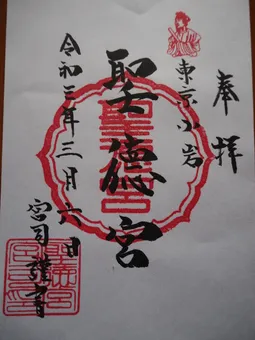 奉拝
東京小岩
聖徳宮
令和三年三月六日
宮司謹書